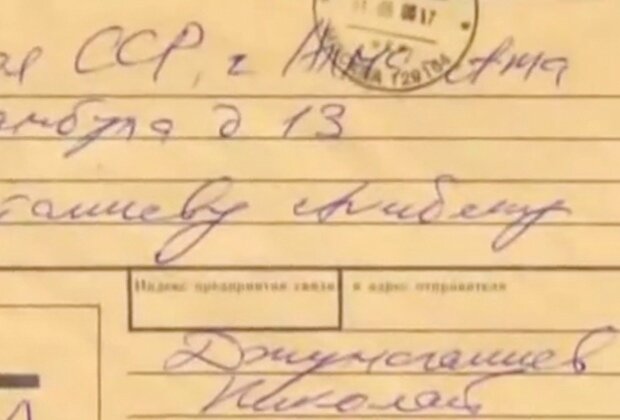 ая ССР, г Алма-Ата
амбула д 13
галиеву Алибеку
Индекс предприятия связи и адрес отправителя
Джумагалиев
Николай